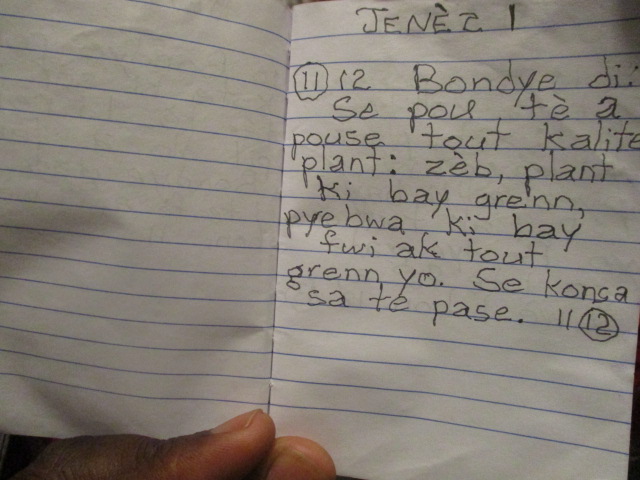 JENÈZ 1
11 12 Bondye di:
Se pou tè a
pouse tout kalite
plant: zèb, plant
ki bay grenn,
pyebwa ki bay
fwi ak tout
grenn yo. Se konsa
sa te pase. 11 12